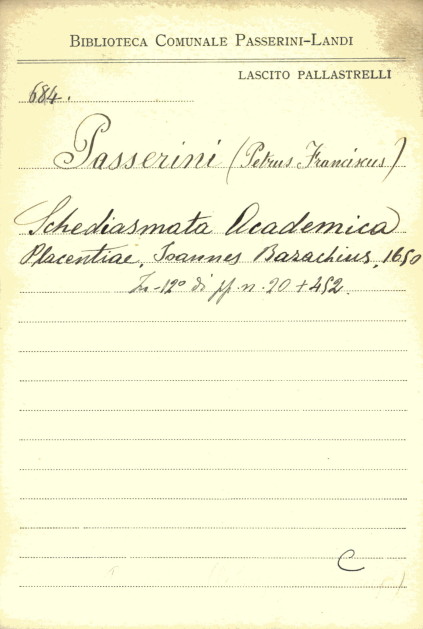 BIBLIOTECA COMUNALE PASSERINI-LANDI
LASCITO PALLASTRELLI
684.
Passerini (Petrus Franciscus)
Schediasmata Academica
Placentiae, Joannes Bazachius, 1650
In-12° di pp. n. 20 + 452.
C